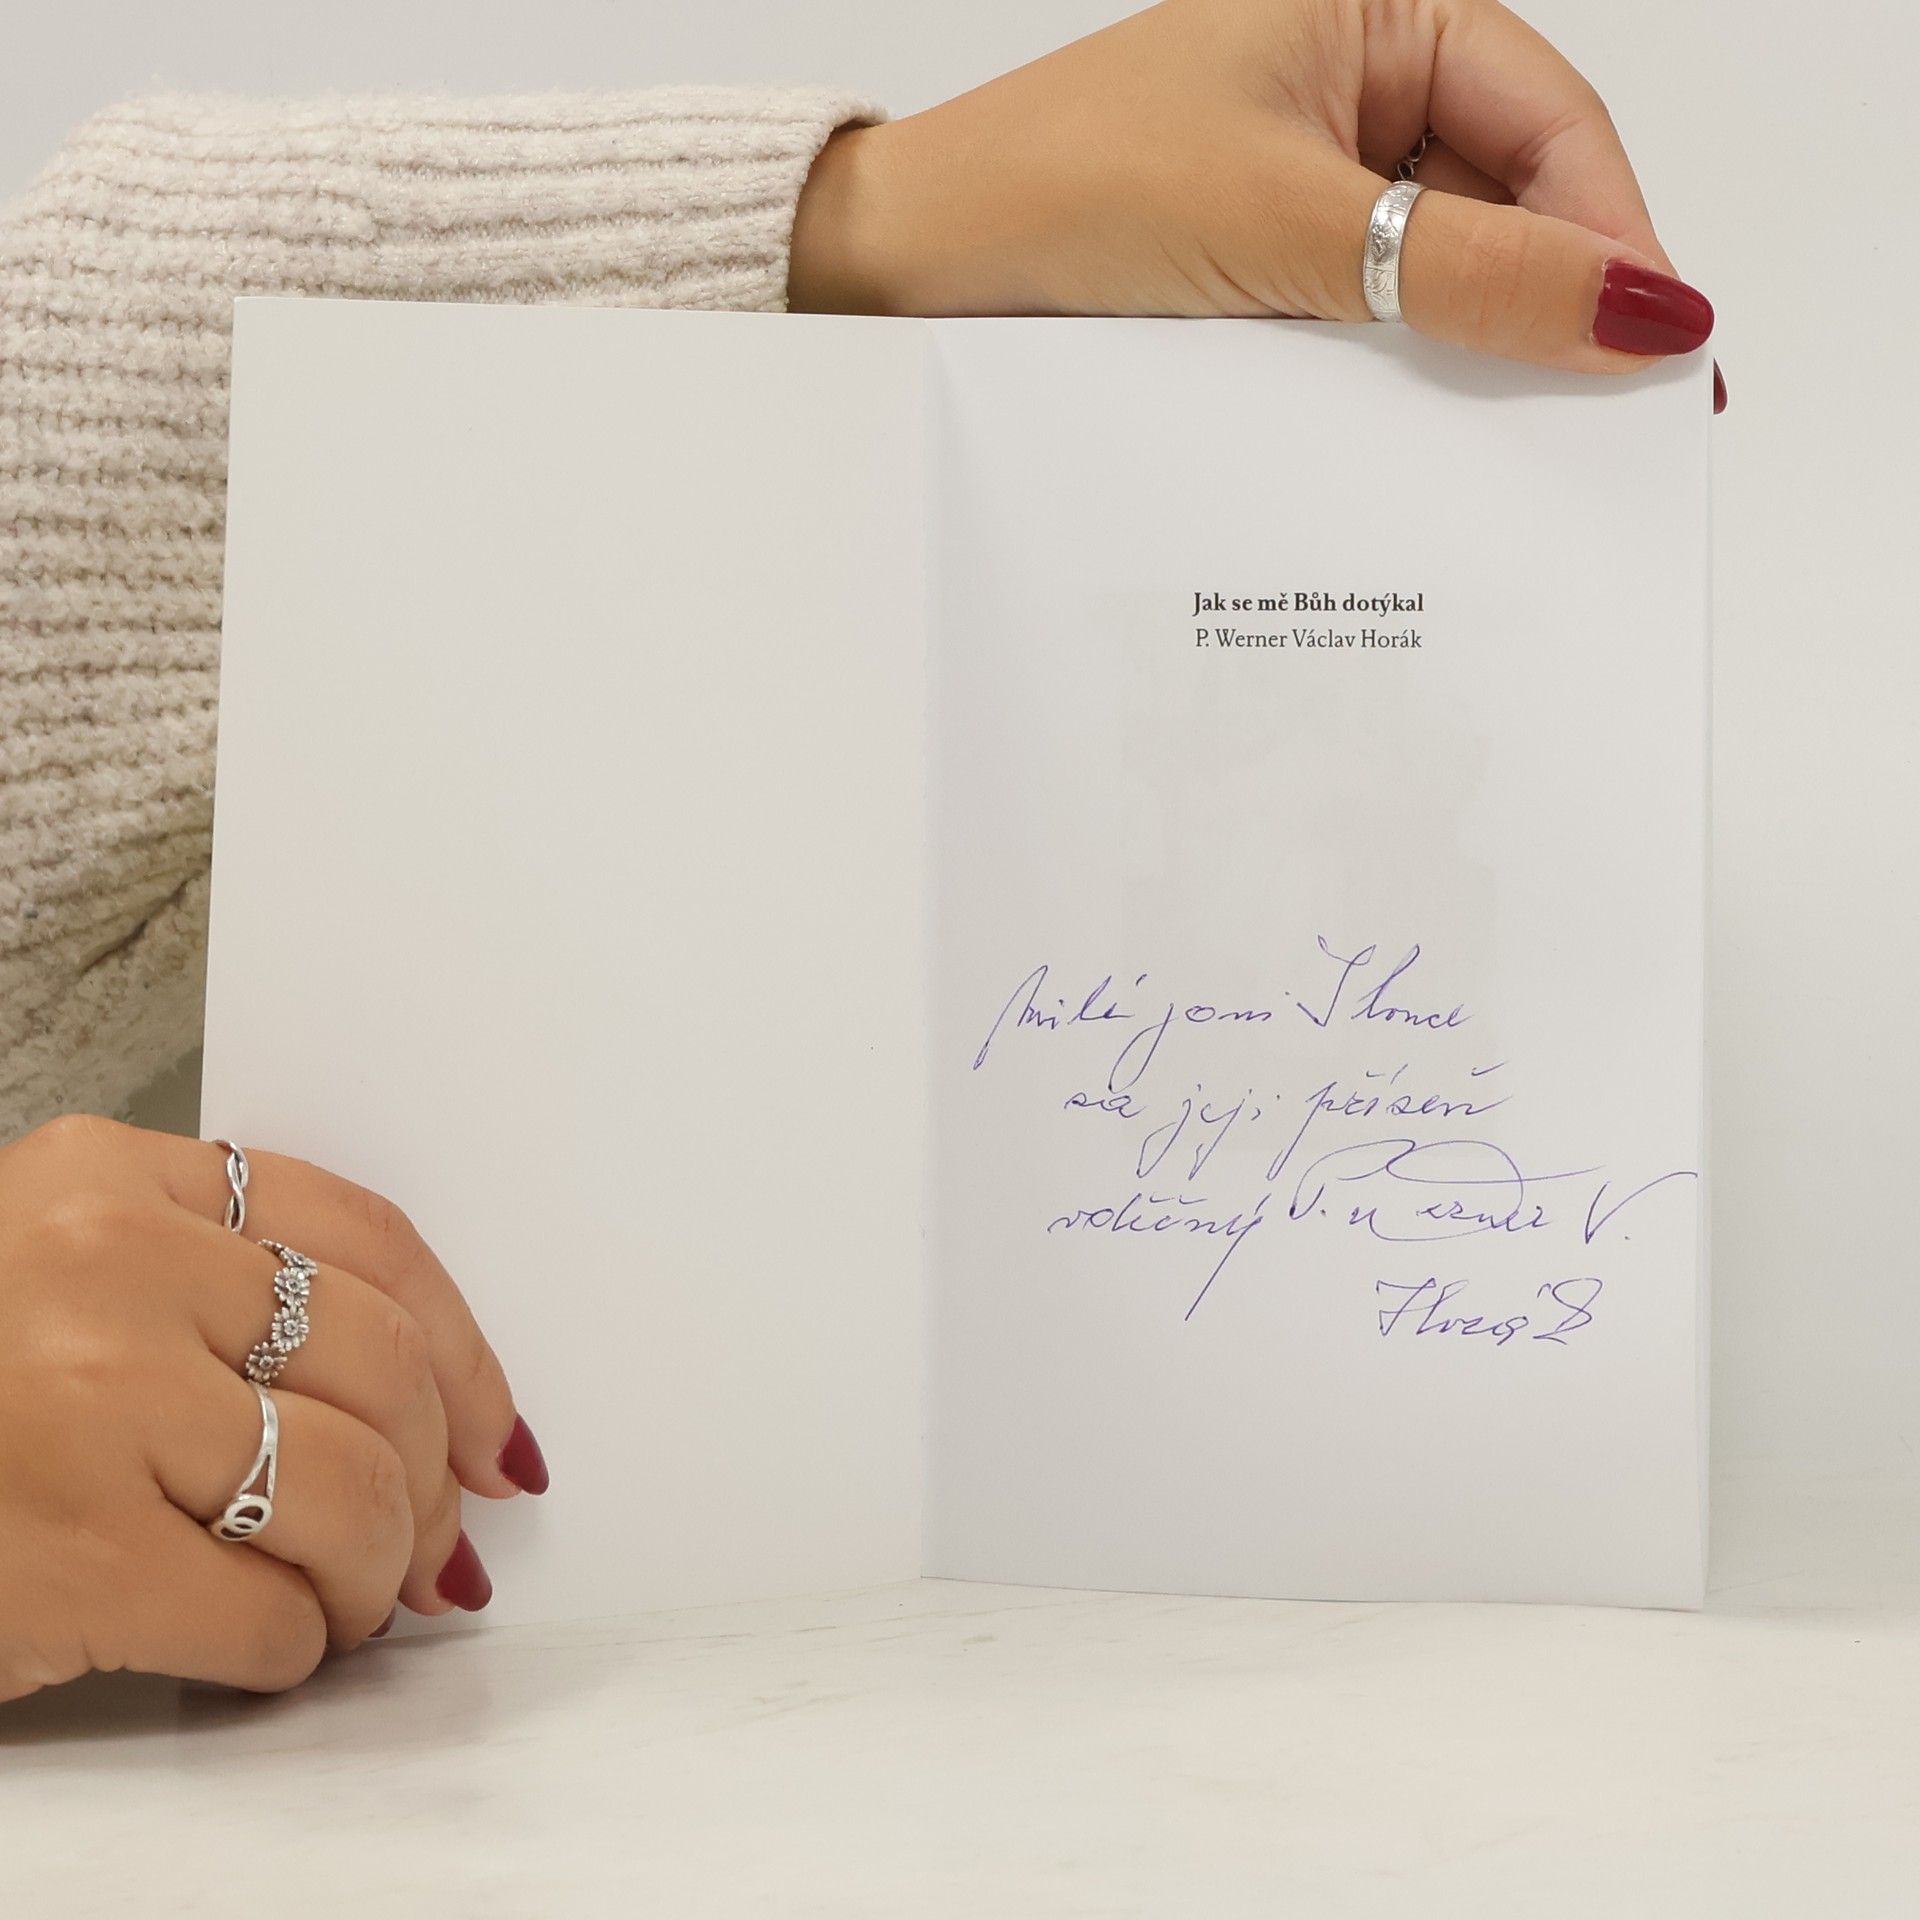 Jak se mě Bůh dotýkal
P. Werner Václav Horák
milé paní Ilonce
za její píseň
vděčný P. Werner V.
Horák